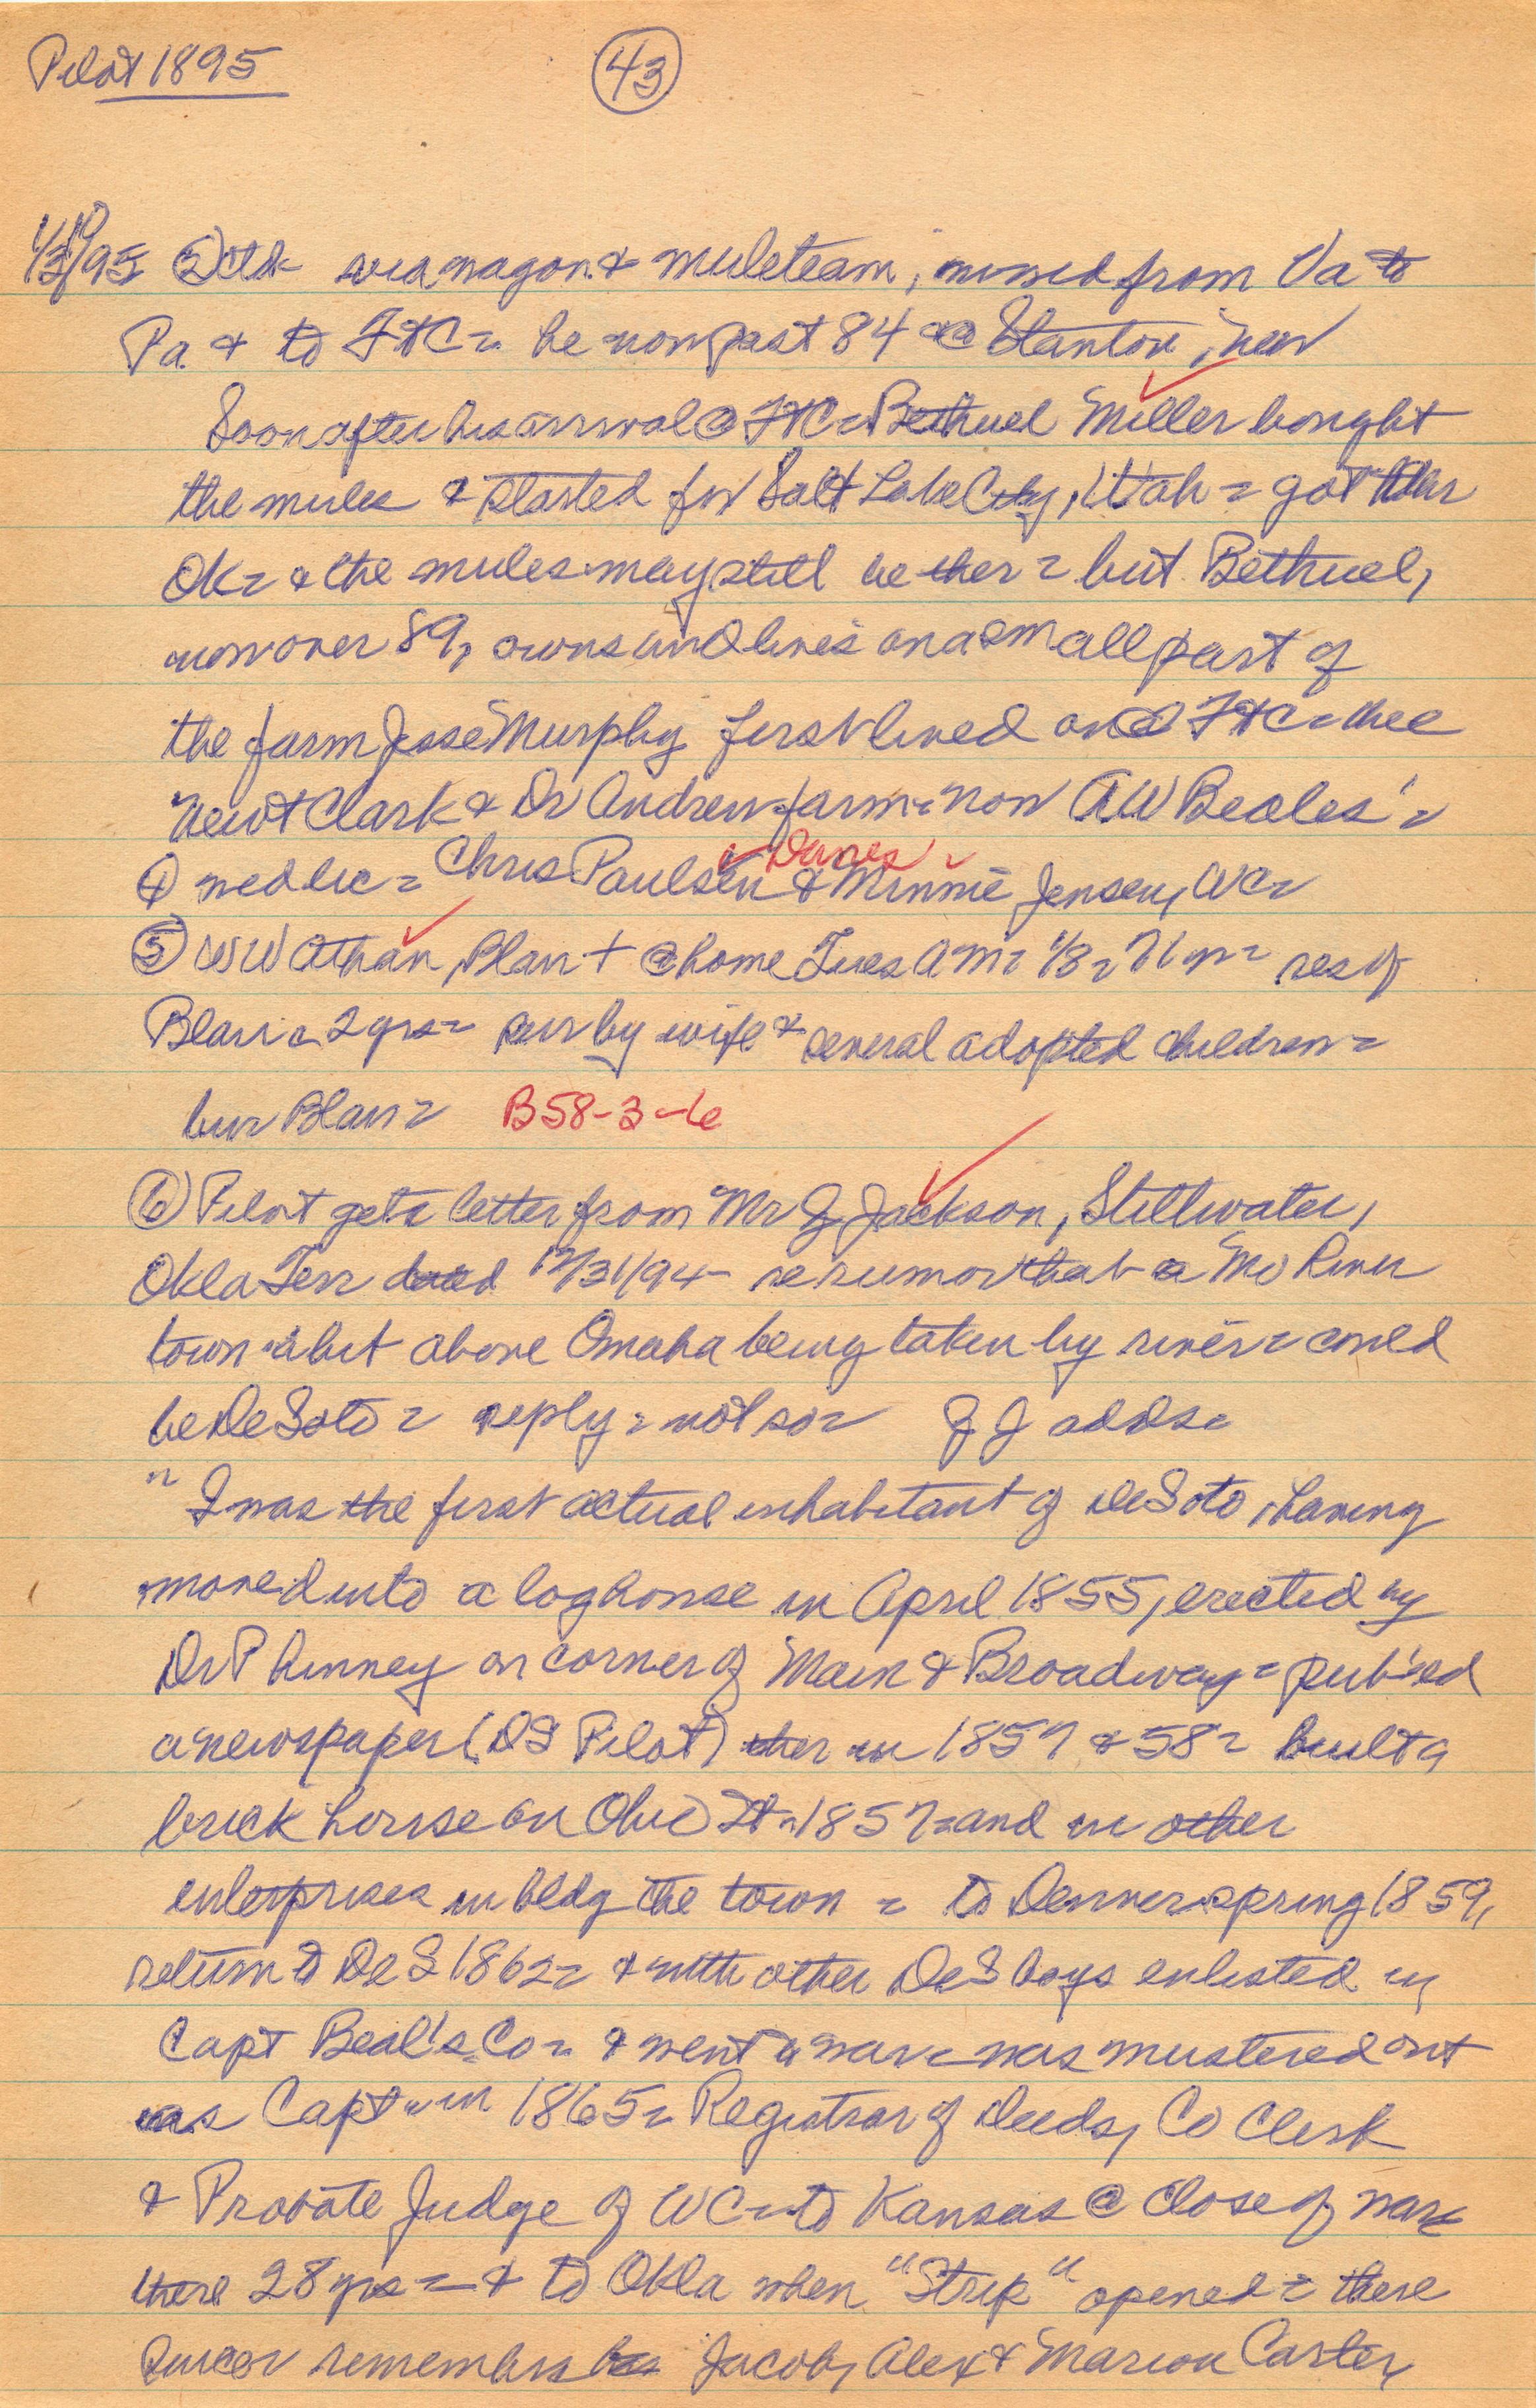 Pilot 1895
43
1/10/95 via wagon & muleteam, moved from Va to
Pa & to FtC = he now past 84 @ Stanton, near
Soon after his arrival @ FtC = Bethuel Miller bought
the mules & started for Salt Lake City, Utah = got ther
OK = & the mules may still be ther = but Bethuel,
now over 89, owns and lives on a small part of
the farm Jesse Murphy first lived on @ FtC = the
Newt Clark & Dr Andrew farm = now AW Beales' =
Danes
④ med lic = Chris Paulsen & Minnie Jensen, WC =
⑤ WW Athan, Blair + @ home Tues AM = 1/8 = 71 yr = res of
Blair = 2 yrs = sur by wife & several adopted children =
bur Blair = B58-3-6
⑥ Pilot gets letter from Mr Z Jackson, Stillwater,
Okla Terr dated 12/31/94 - re rumor that a Mo River
town abit above Omaha being taken by river = could
be DeSoto = reply = not so = Z J adds =
" I was the first actual inhabitant of DeSoto, having
moved into a loghouse in April 1855, erected by
Dr P Kinney on corner of Main & Broadway = pub'ed
a newspaper (DS Pilot) ther in 1857 & 58 = built a
brick house on Ohio St = 1857 = and in other
enterprises in bldg the town = to Denver spring 1859,
return to DeS 1862 = & with other DeS boys enlisted in
Capt Beal's Co = & went to war = was mustered out
as Capt in 1865 = Registrar of Deeds, Co Clerk
& Probate Judge of WC = to Kansas @ close of war =
there 28 yrs = & to Okla when "Strip" opened = there
remembrs Jacob, Alex & Marion Carter,